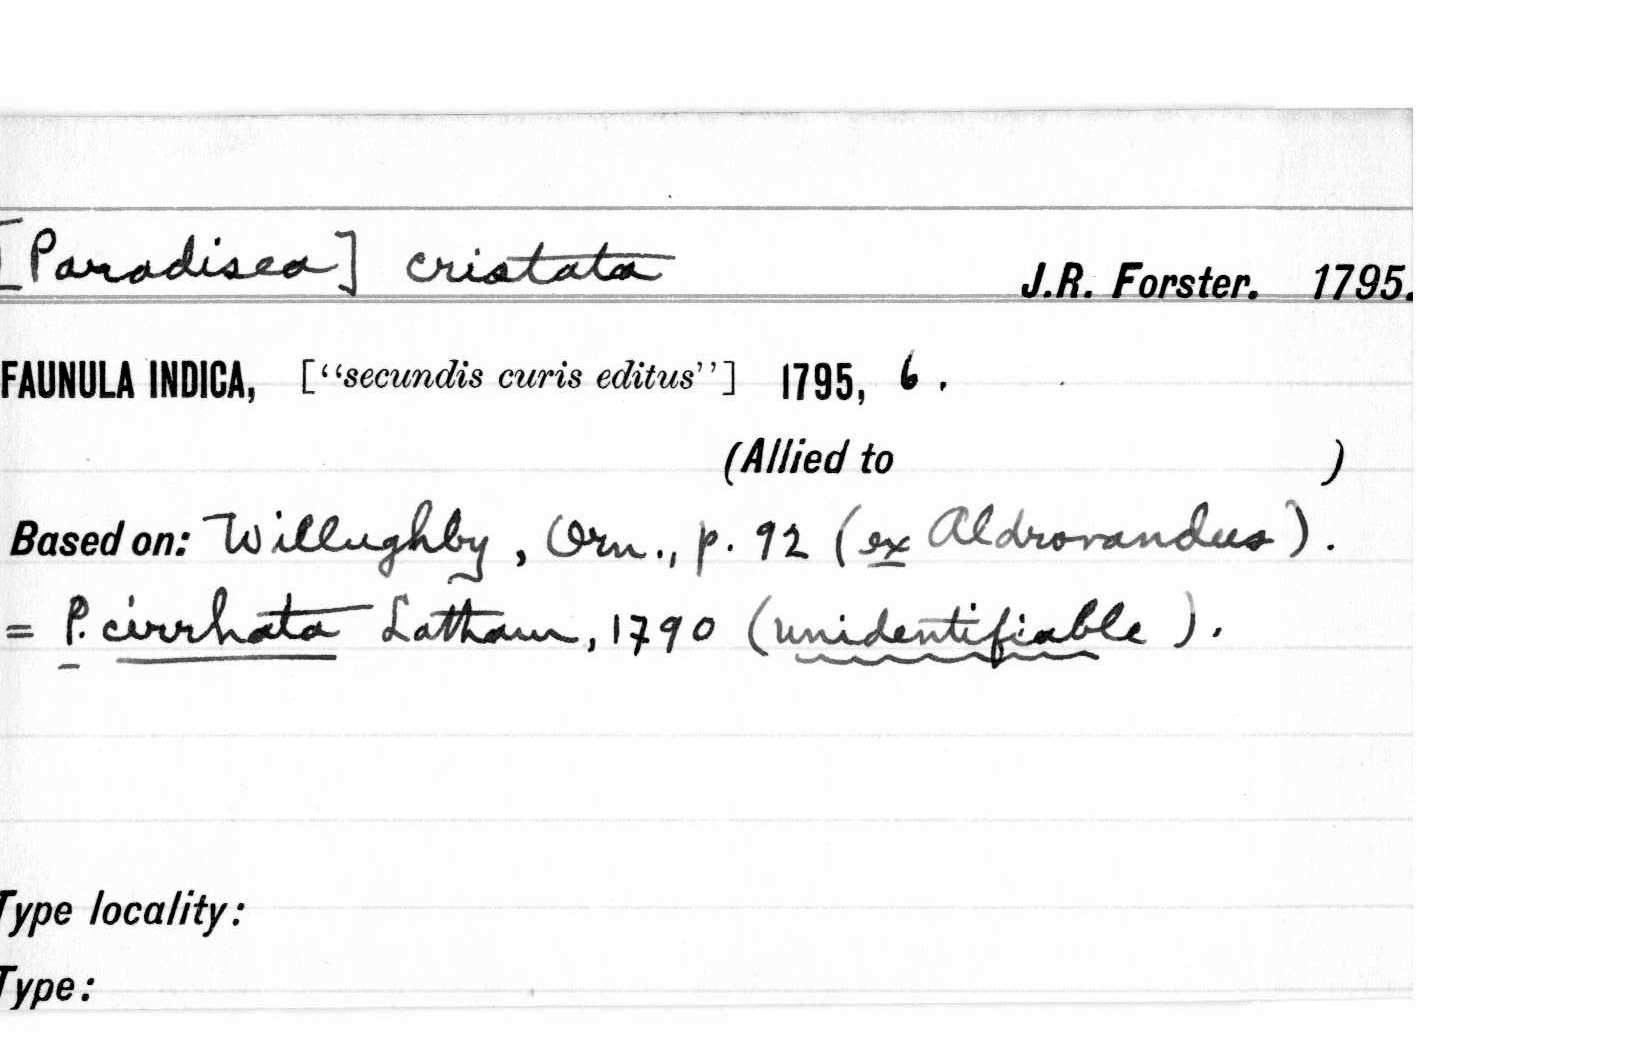 [Paradisea] cristata J.R. Forster. 1795.
FAUNULA INDICA, ["secundis curis editus"] 1795, 6.
(Allied to )
Based on: Willughby, Orn., p. 92 (ex Aldrovandus).
= P. cirrhata Latham, 1790 (unidentifiable).
Type locality:
Type: